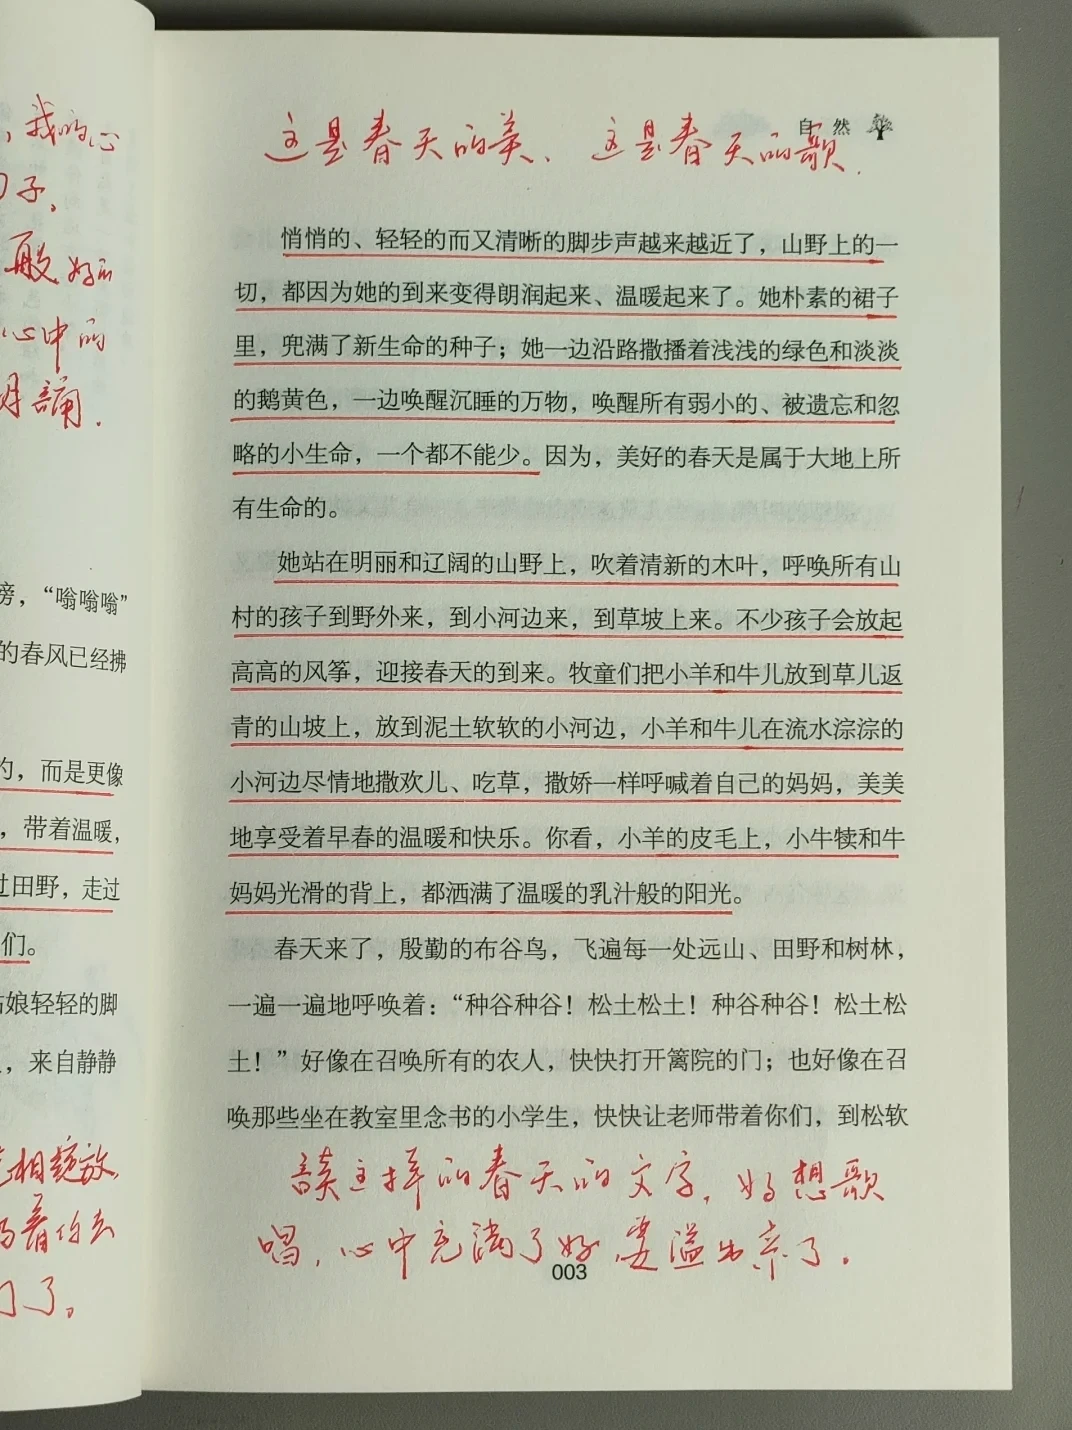 ，我的心
子，
般好
心中的
诵．
傍，“嗡嗡嗡”
的春风已经拂
的，而是更像
，带着温暖，
过田野，走过
们。
姑娘轻轻的脚
，来自静静
相绽放
着你去
门了。
自然
这是春天的美、这是春天的歌．
悄悄的、轻轻的而又清晰的脚步声越来越近了，山野上的一
切，都因为她的到来变得朗润起来、温暖起来了。她朴素的裙子
里，兜满了新生命的种子；她一边沿路撒播着浅浅的绿色和淡淡
的鹅黄色，一边唤醒沉睡的万物，唤醒所有弱小的、被遗忘和忽
略的小生命，一个都不能少。因为，美好的春天是属于大地上所
有生命的。
她站在明丽和辽阔的山野上，吹着清新的木叶，呼唤所有山
村的孩子到野外来，到小河边来，到草坡上来。不少孩子会放起
高高的风筝，迎接春天的到来。牧童们把小羊和牛儿放到草儿返
青的山坡上，放到泥土软软的小河边，小羊和牛儿在流水淙淙的
小河边尽情地撒欢儿、吃草，撒娇一样呼喊着自己的妈妈，美美
地享受着早春的温暖和快乐。你看，小羊的皮毛上，小牛犊和牛
妈妈光滑的背上，都洒满了温暖的乳汁般的阳光。
春天来了，殷勤的布谷鸟，飞遍每一处远山、田野和树林，
一遍一遍地呼唤着：“种谷种谷！松土松土！种谷种谷！松土松
土！”好像在召唤所有的农人，快快打开篱院的门；也好像在召
唤那些坐在教室里念书的小学生，快快让老师带着你们，到松软
读这样的春天的文字，好想歌
唱，心中充满了好 要溢出来了．
003